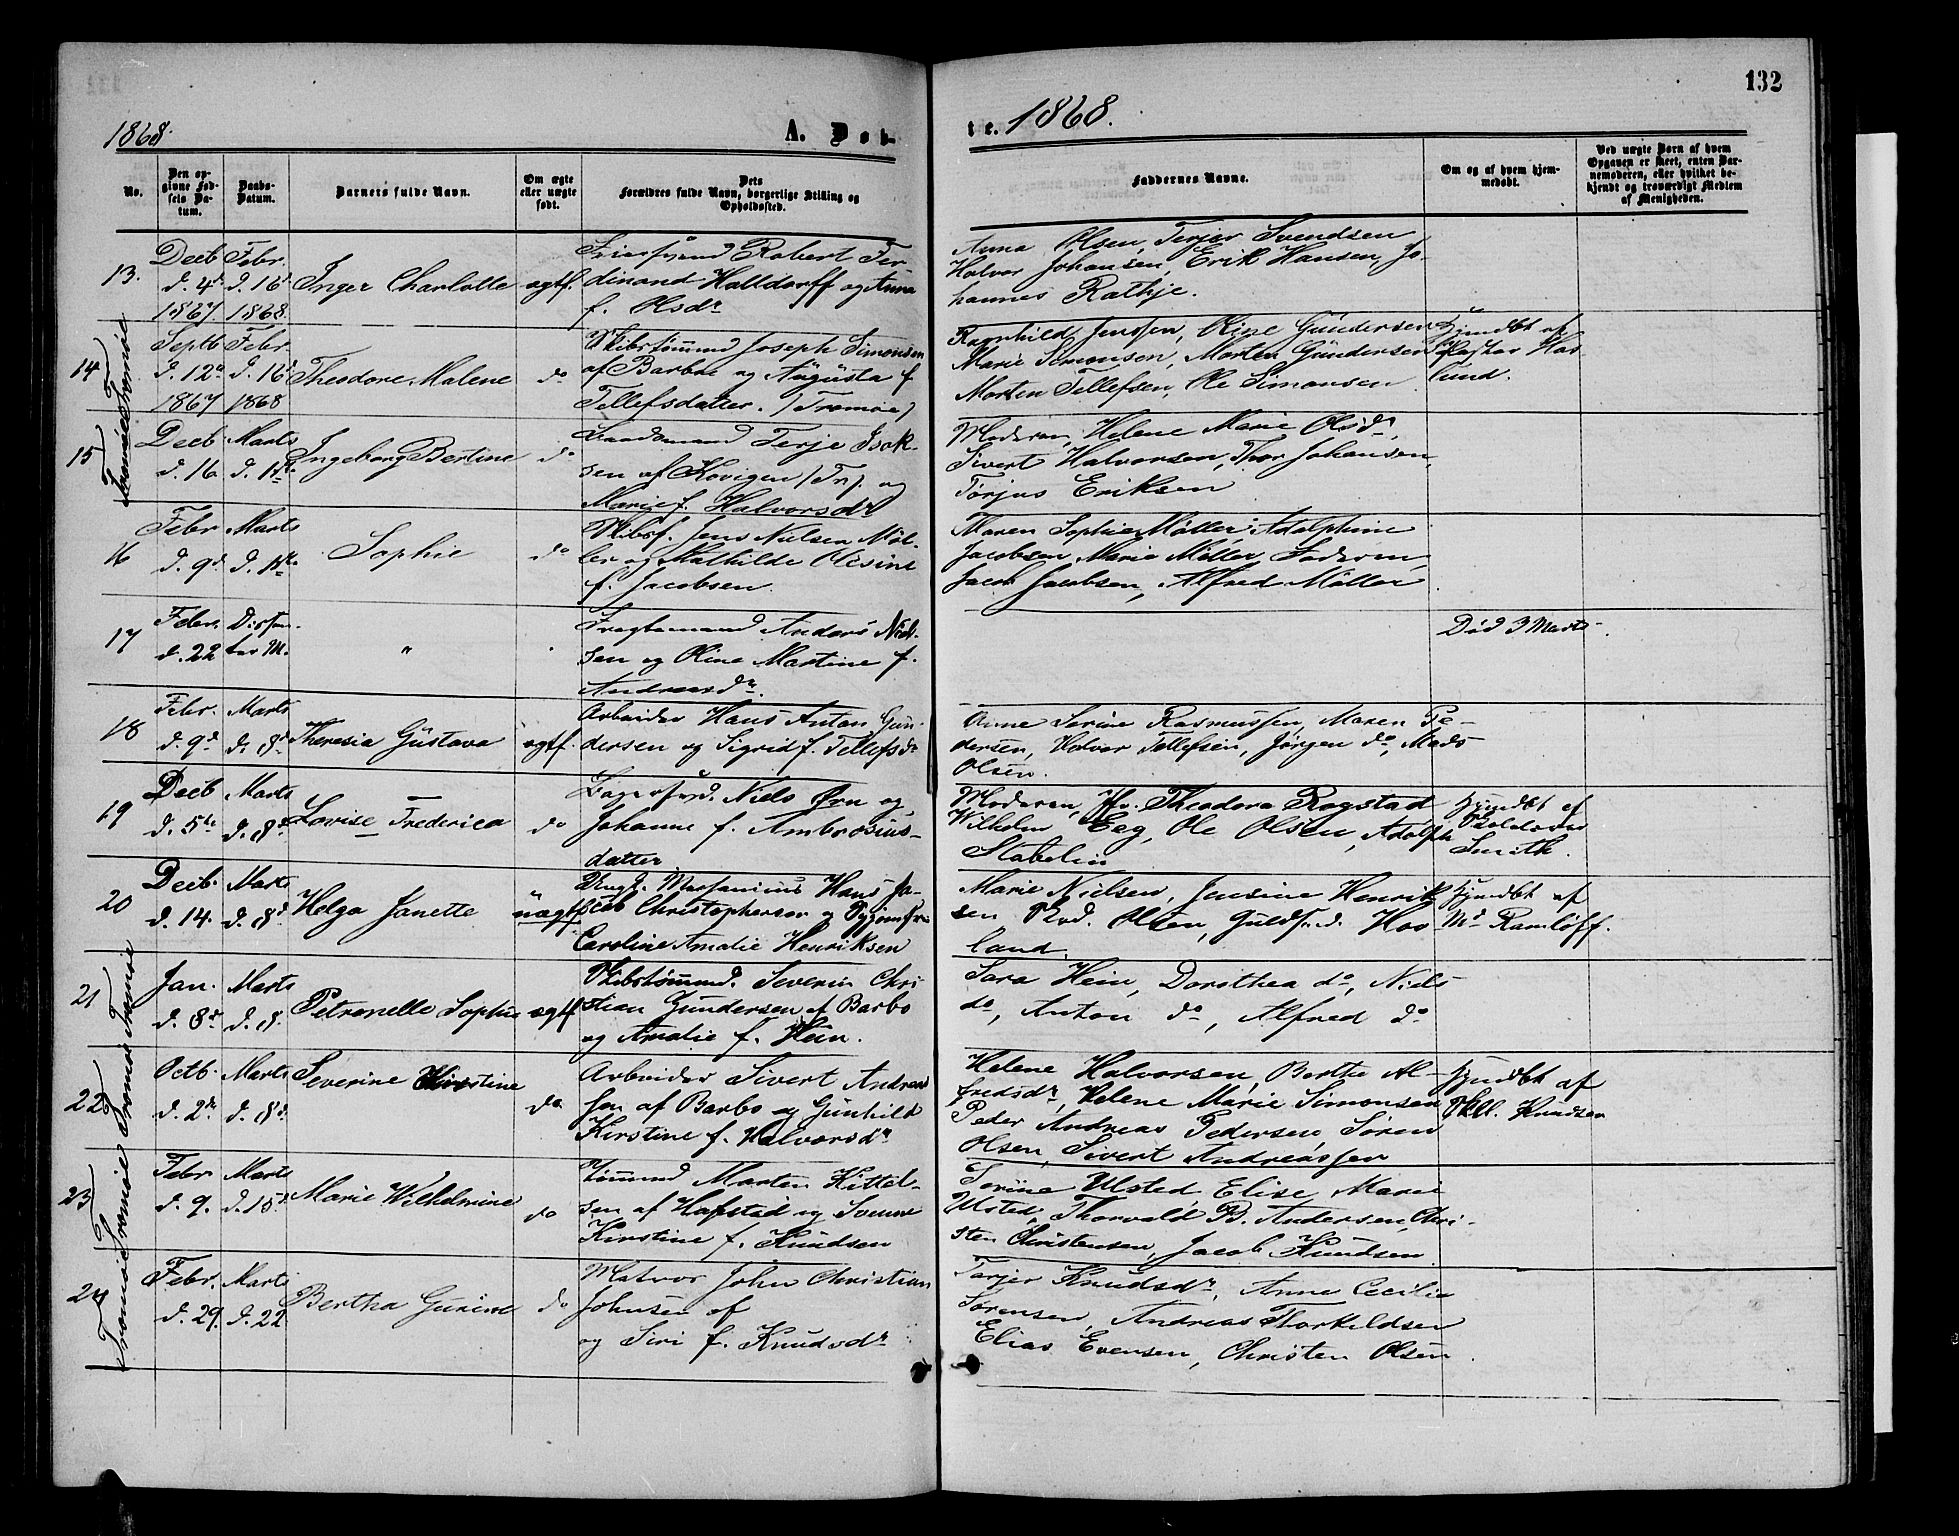 132
1868.
A. Døb-
te. 1868.
No.
Den op-
givne Fød-
sels Da-
tum.
Daabs-
Datum.
Barnets fulde Navn.
Om ægte
eller uægte
født.
Dets
Forældres fulde Navn, borgerlige Stilling og
Opholdssted.
Faddernes Navne.
Om og af hvem hjem-
medøbt.
Ved uægte Børn af hvem
Opgaven er skeet, enten Bar-
nemoderen, eller hvilket be-
kjendt og troværdigt Medlem
af Menigheden.
13.
Decb
d. 4d
1867.
Febr.
d. 16d
1868.
Inger Charlotte
ægtf.
Robert Fer-
dinand Halldorff og Anna
f. Olsdr
Anna Olsen, Terjer Svendsen
Halvor Johansen, Erik Hansen, Jo-
hannes Rathje.
Tromøe
14
Septb
d. 12d
1867
Febr.
d. 16d
1868
Theodore Malene
do
Skibstømmd Joseph Simonsen
af Barboe og Augusta f
Tellefsdatter. (Tromøe)
Ragnhild Jensen, Oline Gundersen
Marie Simonsen, Morten Gundersen
Morten Tellefsen, Ole Simonsen
Hjmdbt af
Hav-
lund.
Tromøe
15
Decb
d. 16
Marts
d. 1ste
Ingeborg Bertine
do
Terje Isak-
sen af Kovigen (Tr). og
Marie f. Halvorsdr
Moderen, Helene Marie Olsdr,
Sivert Halvorsen, Thor Johansen,
Torjus Eriksen
16
Febr
d. 9d
Marts
d. 1ste
Sophie
do
Skibsf. Jens Nielsen Møl-
ler og Mathilde Olesine
f. Jacobsen.
Maren Sophie Møller, Adolphine
Jacobsen, Marie Møller, Faderen,
Jacob Jacobsen, Alfred Møller
17
Febr.
d. 22
"
Fragtemand Anders Niel-
sen og Oline Martine f.
Andreasdr.
Død 3 Marts.
18
Febr.
d. 9d
Marts
d. 8d
Theresia Gustava
ægtf.
Arbeider Hans Anton Gun-
dersen og Sigrid f. Tellefsdr
Anne Serine Rasmussen, Maren Pe-
dersen, Halvor Tellefsen, Jørgen do, Mads
Olsen.
19
Decb
d. 5te
Marts
d. 8d
Lovise Frederica
do
Niels Ørn og
Johanne f. Ambrosius-
datter
Moderen, Jfr. Theodora Rogstad
Wilhelm Eeg, Ole Olsen, Adolph
Stabelin
Hjmdbt af
Smith.
20
Decb.
d. 14.
Marts
d. 8d
Helga Janette
uægtf
Ungk. Hans Ja-
cob Christophersen og
Caroline Amalie Henriksen
Marie Nielsen, Jensine Henrik
sen Olsen, Guldsd. Hov-
land.
Hjmdbt af
Md Ramløff.
Tromøe
21
Jan.
d. 8d
Marts
d. 8.
Petronelle Sophie
ægtf
Skibstømmd. Severin Chri
stian Gundersen af Barbo
og Amalie f. Hein.
Sara Hein, Dorothea do, Niels
do, Anton do, Alfred do
Tromøe
22
Octb.
d. 2den
Marts
d. 8d.
Severine Kirstine
do
Arbeider Sivert Andreas
sen af Barbo og Gunhild
Kirstine f. Halvorsdr
Helene Halvorsen, Berthe Al-
fredsdr, Helene Marie Simonsen
Peder Andreas Pedersen, Søren
Olsen, Sivert Andreassen
Hjmdbt af
Skll. Knudsen
Tromøe
23
Febr
d. 9.
Marts
d. 15d
Marie Wilhelmine
do
Tømmd Morten Kittel-
sen af Hafstad og
Kirstine f. Knudsen
Serine Ulsted, Elise Marie
Ulsted, Thorvald B. Andersen, Chri-
sten Christensen, Jacob Knudsen
Tromøe
24
Febr.
d. 29.
Marts
d. 22
Bertha Gurine
do
Matros John Christian
Johnsen af
og Siri f. Knudsdr
Tarjer Knudsdr, Anne Cecilie
Sørensen, Andreas Thorkildsen
Elias Evensen, Christen Olsen.